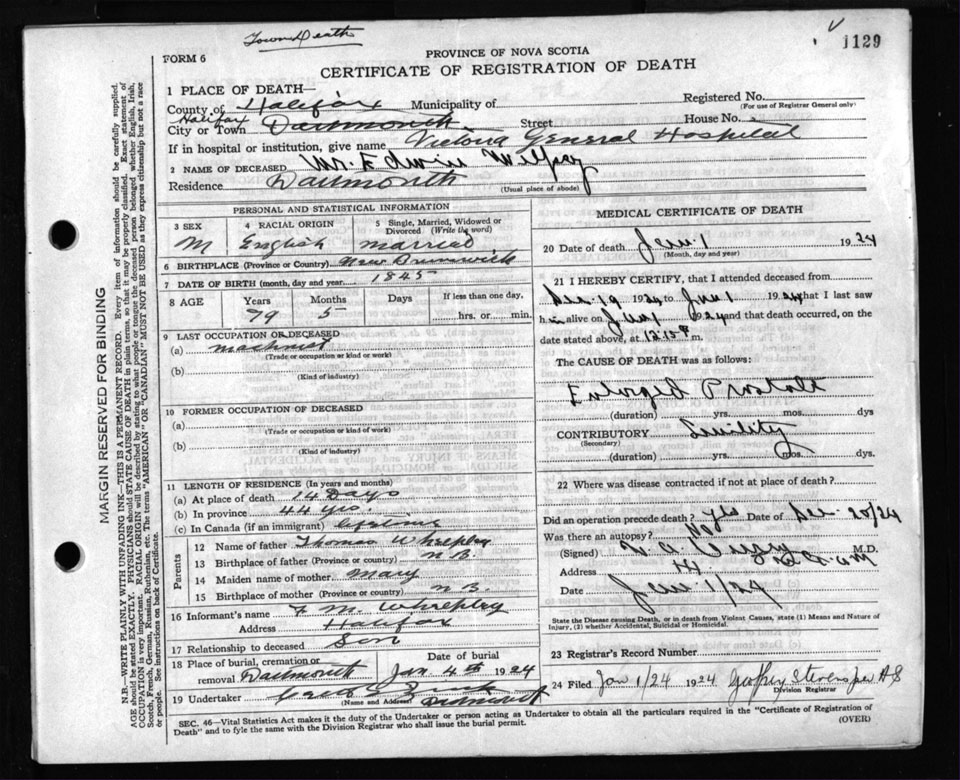 Town Death
V 1129
FORM 6
PROVINCE OF NOVA SCOTIA
CERTIFICATE OF REGISTRATION OF DEATH
1 PLACE OF DEATH—
County of Halifax Municipality of Registered No.
(For use of Registrar General only)
Halifax
City or Town Dartmouth Street House No.
If in hospital or institution, give name Victoria General Hospital
2 NAME OF DECEASED Mr. Edwin
Residence Dartmouth (Usual place of abode)
PERSONAL AND STATISTICAL INFORMATION
3 SEX 4 RACIAL ORIGIN 5 Single, Married, Widowed or Divorced (Write the word)
M English married
6 BIRTHPLACE (Province or Country) New Brunswick
7 DATE OF BIRTH (month, day and year) 1845
8 AGE Years Months Days If less than one day,
79 5 hrs. or min.
9 LAST OCCUPATION OF DECEASED
(a) machinist
(Trade or occupation or kind or work)
(b)
(Kind of industry)
10 FORMER OCCUPATION OF DECEASED
(a)
(Trade or occupation or kind or work)
(b)
(Kind of industry)
11 LENGTH OF RESIDENCE (In years and months)
(a) At place of death 14 Days
(b) In province 44 yrs.
(c) In Canada (if an immigrant) lifetime
Parents
12 Name of father Thomas Whelpley
13 Birthplace of father (Province or Country) N.B.
14 Maiden name of mother Mary
15 Birthplace of mother (Province or Country) N.B.
16 Informant's name F. M. Whelpley
Address Halifax
17 Relationship to deceased Son
18 Place of burial, cremation or removal Dartmouth Date of burial Jan 4th 1924
19 Undertaker
(Name and Address) Dartmouth
MEDICAL CERTIFICATE OF DEATH
20 Date of death Jan. 1 1924
(Month, day and year)
21 I HEREBY CERTIFY, that I attended deceased from
Dec 19 1924 to Jan 1 1924 that I last saw
him alive on Jan 1 1924 and that death occurred, on
date stated above, at m.
The CAUSE OF DEATH was as follows:
Enlarged Prostate
(duration) yrs. mos. dys
CONTRIBUTORY Senility
(Secondary)
(duration) yrs. mos. dys.
22 Where was disease contracted if not at place of death?
Did an operation precede death? yes Date of Dec. 20/24
Was there an autopsy? No
(Signed) M.D.
Address
Date Jan. 1/24
State the Disease causing Death, or in death from Violent Causes, state (1) Means and Nature of Injury, (2) whether Accidental, Suicidal or Homicidal.
23 Registrar's Record Number
24 Filed Jan 1/24 1924 Geoffrey Stevens per AS
Division Registrar
SEC. 46—Vital Statistics Act makes it the duty of the Undertaker or person acting as Undertaker to obtain all the particulars required in the "Certificate of Registration of
Death" and to fyle the same with the Division Registrar who shall issue the burial permit. (OVER)
MARGIN RESERVED FOR BINDING
N.B.—WRITE PLAINLY WITH UNFADING INK—THIS IS A PERMANENT RECORD. Every item of information should be carefully supplied.
AGE should be stated EXACTLY. PHYSICIANS should STATE CAUSE OF DEATH in plain terms, so that it may be properly classified. Exact statement of
OCCUPATION is very important. RACIAL ORIGIN will be described by stating to what people or tongue the deceased person belonged whether English, Irish,
Scotch, French, German, Russian, Ruthenian, etc. The terms "AMERICAN" OR "CANADIAN" MUST NOT BE USED as they express citizenship but not a race
or people. See instructions on back of Certificate.